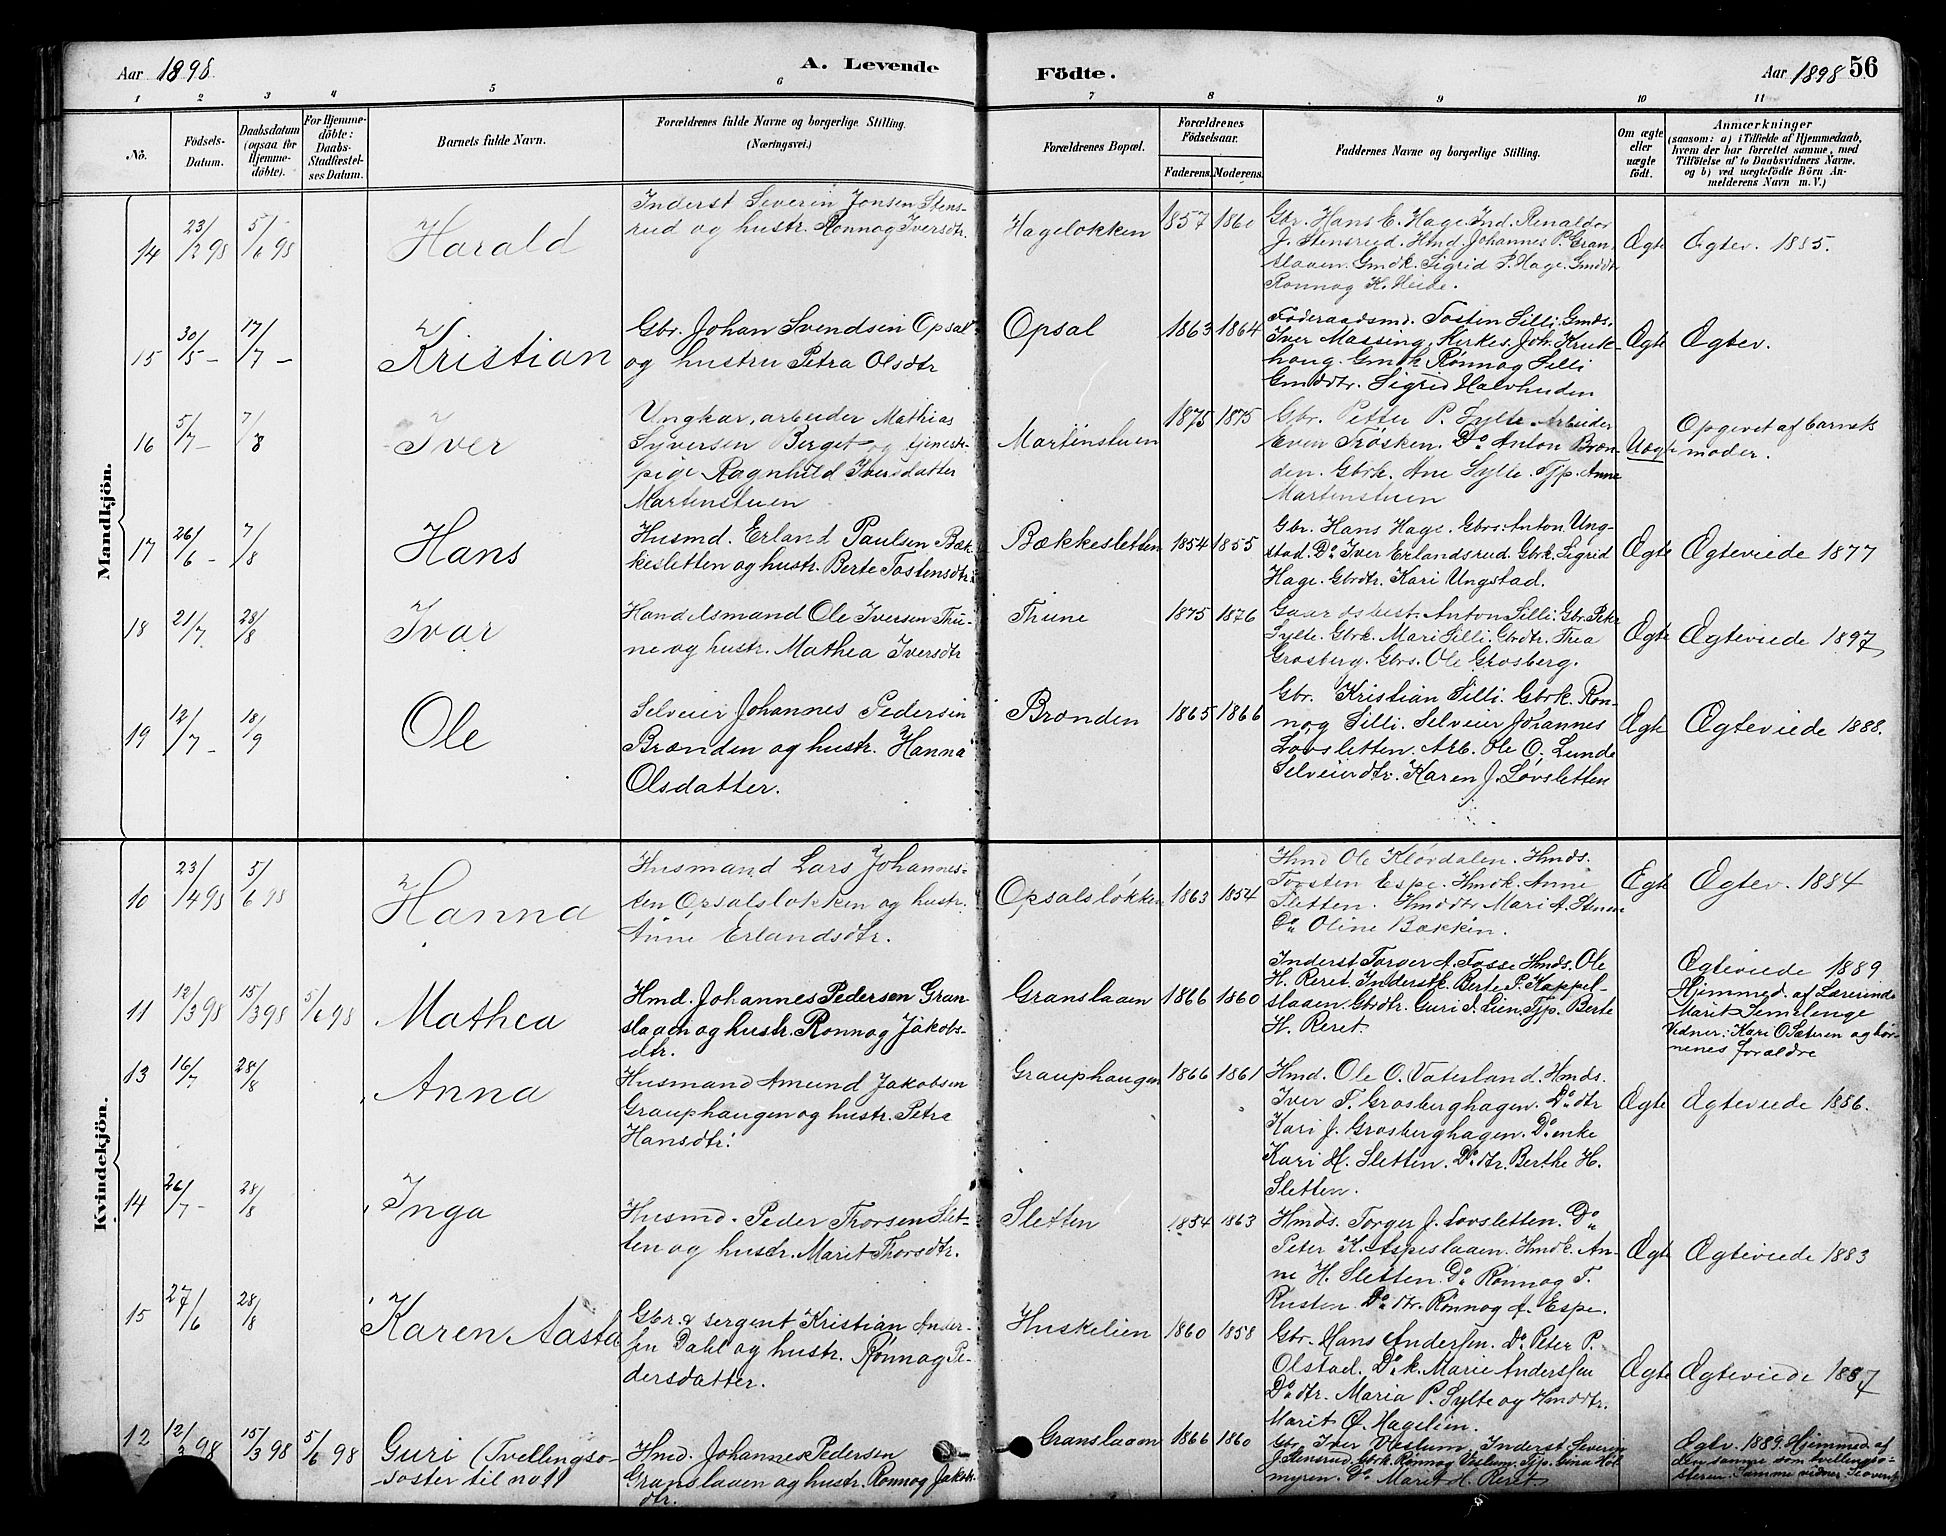 Aar 1898.
A. Levende
Födte.
Aar 1898
56
1 2 3 4 5 6 7 8 9 10 11
No.
Födsels-
Datum.
Daabsdatum
(ogsaa for
Hjemme-
döbte).
For Hjemme-
döbte:
Daabs-
Stadfæstel-
ses Datum.
Barnets fulde Navn.
Forældrenes fulde Navne og borgerlige Stilling.
(Næringsvei.)
Forældrenes Bopæl.
Forældrenes
Födselsaar.
Faderens. Moderens.
Faddernes Navne og borgerlige Stilling.
Om ægte
eller
uægte
födt.
Anmærkninger
(saasom: a) i Tilfælde af Hjemmedaab,
hvem der har forrettet samme, med
Tilföielse af to Daabsvidners Navne.
og b) ved uægtefödte Börn An-
melderens Navn m. V.)
Mandkjön.
14
23/2 98
5/6 98
Harald
Inderst Severin Jonsen Stens-
rud og hustr. Rønnog Iversdtr.
Hageløkken
1857 1860
Gbr. Hans E. Hage. Ind. Renaldor
J. Stensrud. Hmd. Johannes P. Gran-
slaaen. Gmdk. Sigrid P. Hage. Gmddtr
Rønnog H. Heide.
Ægte
Ægtev. 1885.
15
30/5 -
17/7 -
Kristian
Gbr. Johan Svendsen Opsal
og hustru Petra Olsdtr
Opsal
1863 1864
Føderaadsmd. Tosten Silli. Gmds.
Iver Massing. Kirkes. Joh. Kruk-
houg. Gmk Rønnog Silli
Gmddtr. Sigrid Halvhuden
Ægte
Ægtev.
16
5/7 -
7/8
Iver
Ungkar, arbeider Mathias
Syversen Berget og tjeneste-
pige Ragnhild Iversdatter
Martenstuen
Martenstuen
1875 1875
Gbr. Petter P. Sylte. Arbeider
Even Frøsken. Do Anton Bræn-
den. Gbrk. Ane Sylte. Tjp. Anne
Martenstuen
Uægte
Opgevet af barnets
moder.
17
26/6 -
7/8
Hans
Husmd. Erland Paulsen Bæk-
kesletten og hustr. Berte Tostensdtr.
Bækkesletten
1854 1855
Gbr. Hans Hage. Gbrs. Anton Ung-
stad. Do Iver Erlandsrud. Gbrk. Sigrid
Hage. Gbrdtr. Kari Ungstad.
Ægte
Ægteviede 1877
18
21/7.
28/8
Ivar
Handelsmand Ole Iversen Thu-
ne og hustr. Mathea Iversdtr
Thune
1875 1876
Gaardsbest. Anton Silli. Gbr. Peter
Sylte. Gbrk. Mari Silli. Gbrdtr. Thea
Grosberg. Gbrs. Ole Grosberg.
Ægte
Ægteviede 1897
19
12/7 -
18/9
Ole
Selveier Johannes Pedersen
Brænden og hustr. Hanna
Olsdatter.
Brænden
1865 1866
Gbr. Kristian Silli. Gbrk. Røn-
nog Silli. Selveier Johannes
Løvsletten. Arb. Ole O. Lunde
Selveierdtr. Karen J. Løvsletten
Ægte
Ægteviede 1888.
Kvindekjön.
10
23/4 98
5/6 98
Hanna
Husmand Lars Johannes-
sen Opsalsløkken og hustr.
Anne Erlandsdtr.
Opsalsløkken
1863 1854
Hmd Ole Kløvdalen. Hmds.
Torsten Espe. Hmdk. Anne
Sletten. Hmddtr Mari A. Stuen
Do Oline Bækken.
Egte
Ægtev. 1884
11
12/3 98
15/3 98
5/6 98
Mathea
Hmd. Johannes Pedersen Gran-
slaaen og hustr. Rønnog Jakobs-
dtr.
Granslaaen
1866 1860
Inderst Torger A. Fosse Hmds. Ole
H. Reret. Inderstk. Berte P. Kappel-
slaaen. Gbrdtr. Guri I. Lien. Tjp. Berte
H. Reret.
Ægteviede 1889
Hjemmed. af Lærerinde
Marit Semelenge
Vidner: Kari O. Sæteren og bør-
nenes forældre
13
16/7
28/8
Anna
Husmand Amund Jakobsen
Grauphaugen og hustr. Petra
Hansdtr.
Grauphaugen
1866 1861
Hmd. Ole O. Vaterland. Hmds.
Iver T. Grosberghagen. Do dtr
Kari J. Grosberghagen. Do enke
Kari H. Sletten. Do dtr. Berthe H.
Sletten.
Ægte
Ægteviede 1886.
14
26/7 -
28/8
Inga
Husmd. Peder Thorsen Slet-
ten og hustr. Marit Thorsdtr.
Sletten
1854 1863
Hmds. Torger J. Løvsletten. Do
Peter K. Aspeslaaen. Hmdk. An-
ne H. Sletten. Do Rønnog T.
Rusten. Do dtr. Rønnog A. Espe.
Ægte
Ægteviede 1883
15
27/6
28/8
Karen Aasta
Gbr. & sergent Kristian Ander-
sen Dahl og hustr. Rønnog Pe-
dersdatter.
Huskelien
1860 1858
Gbr. Hans Andersen. Do Peter P.
Olstad. Do k. Marie Anderssen
Do dtr. Maria P. Sylte og Hmddtr.
Marit O. Hagelien.
Ægte
Ægteviede 1887
12
12/3 98
15/3 98
5/6 98
Guri (Tvellingsø-
søster til no 11
Hmd. Johannes Pedersen
Granslaaen og hustr. Rønnog Jakobs-
dtr.
Granslaaen
1866 1860
Gbr. Iver Veslum. Inderst Severin
J. Stensrud. Gbrk. Rønnog Veslum. Tjp. Gina Høl-
myren. Do Marit H. Reret.
Ægtv. 1889. Hjemmed af
den samme som tvellingsø-
steren. Samme vidner